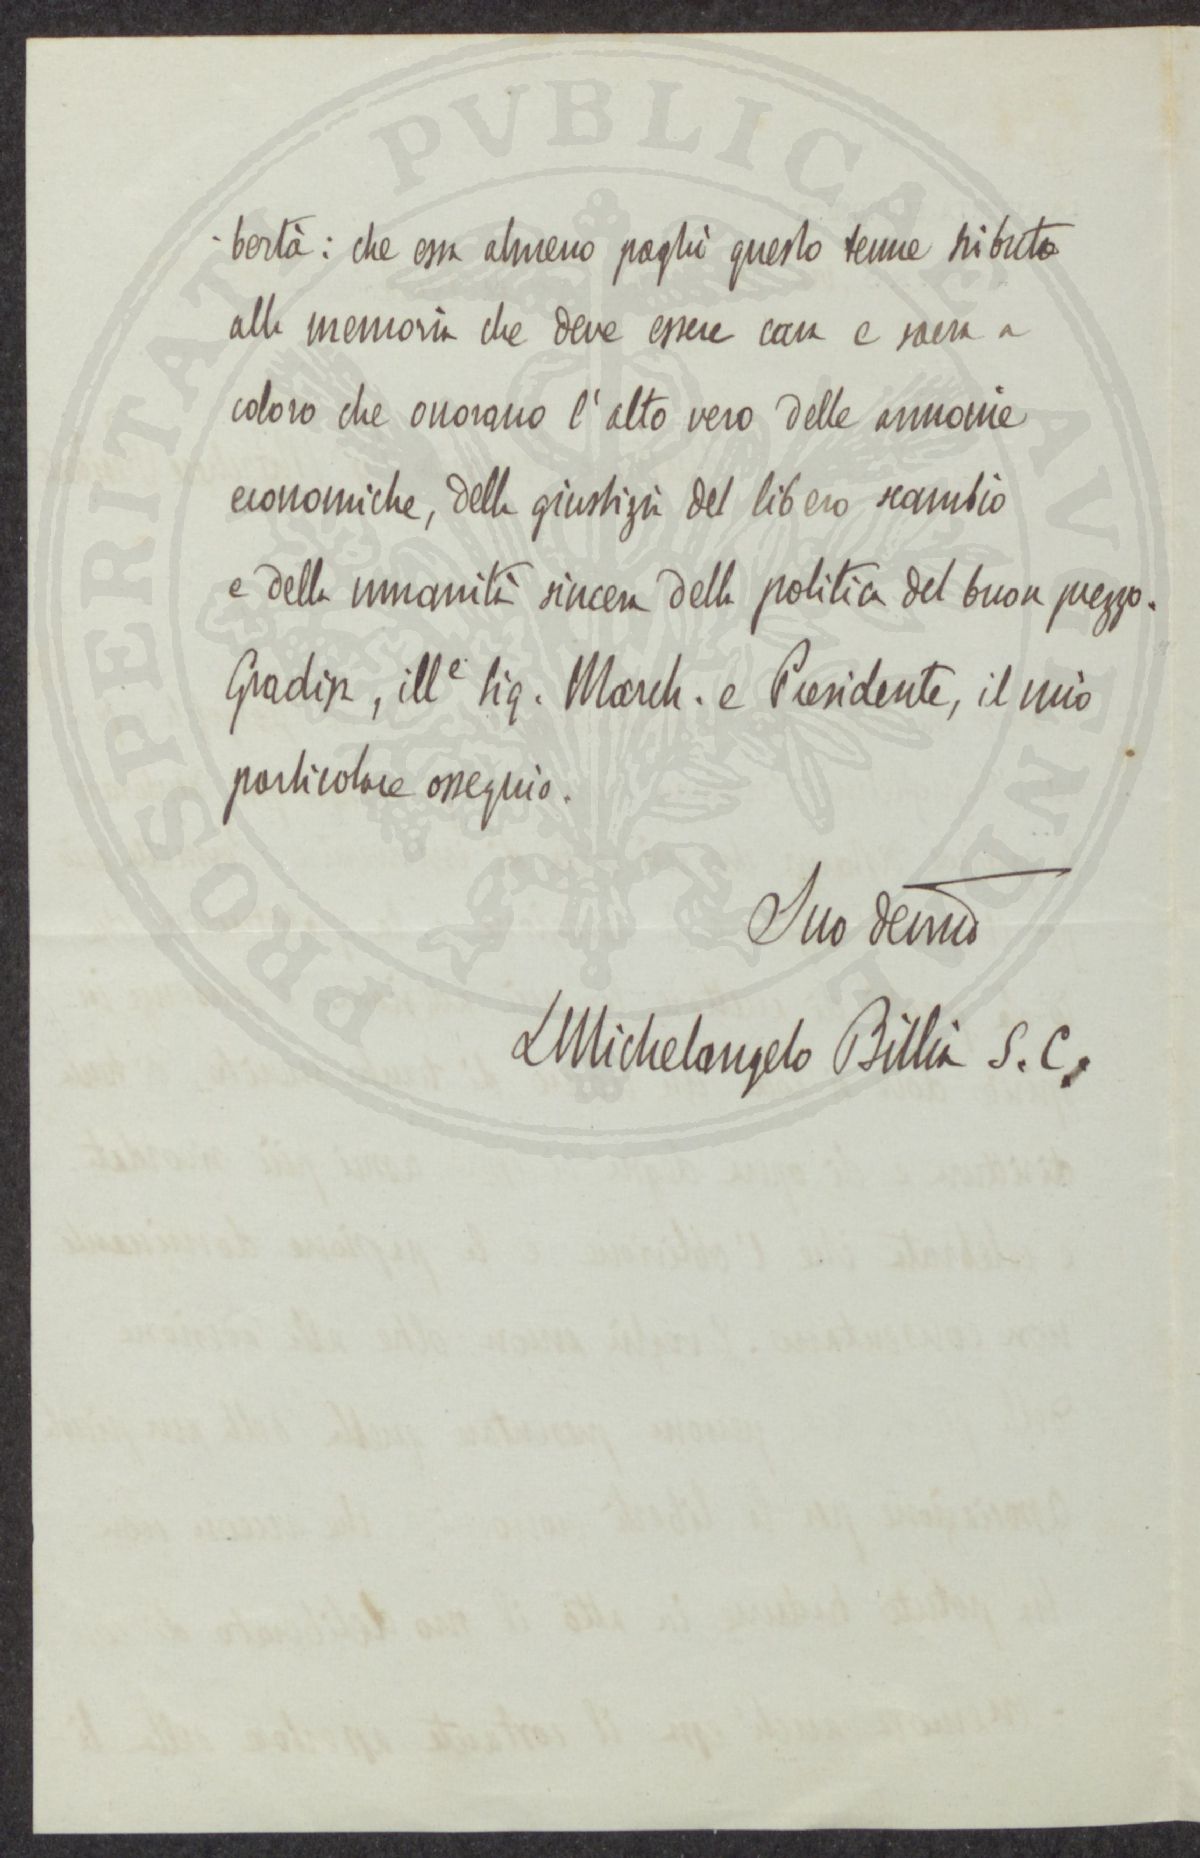 PROSPERITATI PVBLICAE AVGENDAE
-bertà: che essa almeno paghi questo tenue tributo
alla memoria che deve essere cara e sacra a
coloro che onorano l'alto vero delle armonie
economiche, della giustizia del libero scambio
e della umanità sincera della politica del buon prezzo.
Gradisca, ill.e Sig. March. e Presidente, il mio
particolare ossequio.
Suo devmo
LMichelangelo Billia S. C.